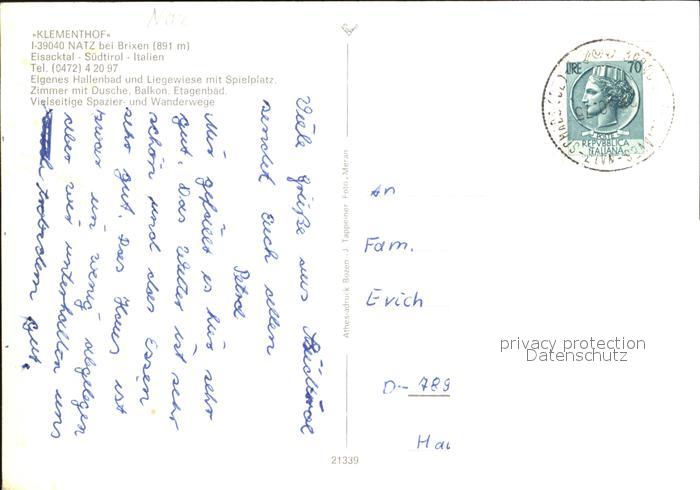 Naz
«KLEMENTHOF»
I-39040 NATZ bei Brixen (891 m)
Eisacktal - Südtirol - Italien
Tel. (0472) 4 20 97
Eigenes Hallenbad und Liegewiese mit Spielplatz.
Zimmer mit Dusche, Balkon, Etagenbad.
Vielseitige Spazier- und Wanderwege
Viele Grüße aus Südtirol
sendet Euch allen
Petra
Mir gefällt es hier sehr
gut. Das Wetter ist sehr
schön und das Essen
sehr gut. Das Haus ist
zwar ein wenig abgelegen
aber wir unterhalten uns
trotzdem gut.
Athesiadruck Bozen - J. Tappeiner Foto, Meran
LIRE 70
POSTE
REPVBBLICA
ITALIANA
NATZ-SCHABS
An
Fam.
Erich
D-789
Hau
privacy protection
Datenschutz
21339